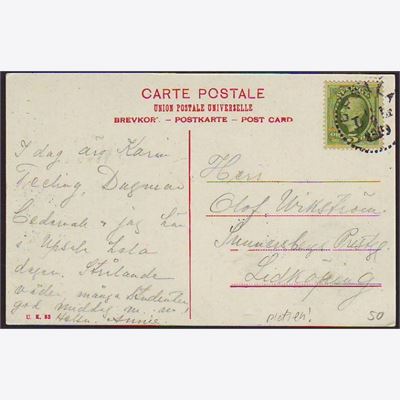 CARTE POSTALE
UNION POSTALE UNIVERSELLE
BREVKORT – POSTKARTE – POST CARD
I dag äro Karin
Dagmar
& jag här
i Upsala hela
dagen. Strålande
väder, många studenter,
god middag m. m.
Helsn. Annie.
Herr
Olof Wikström.
Sunnersbergs Prestg.
Lidköping
U. E. 83
50